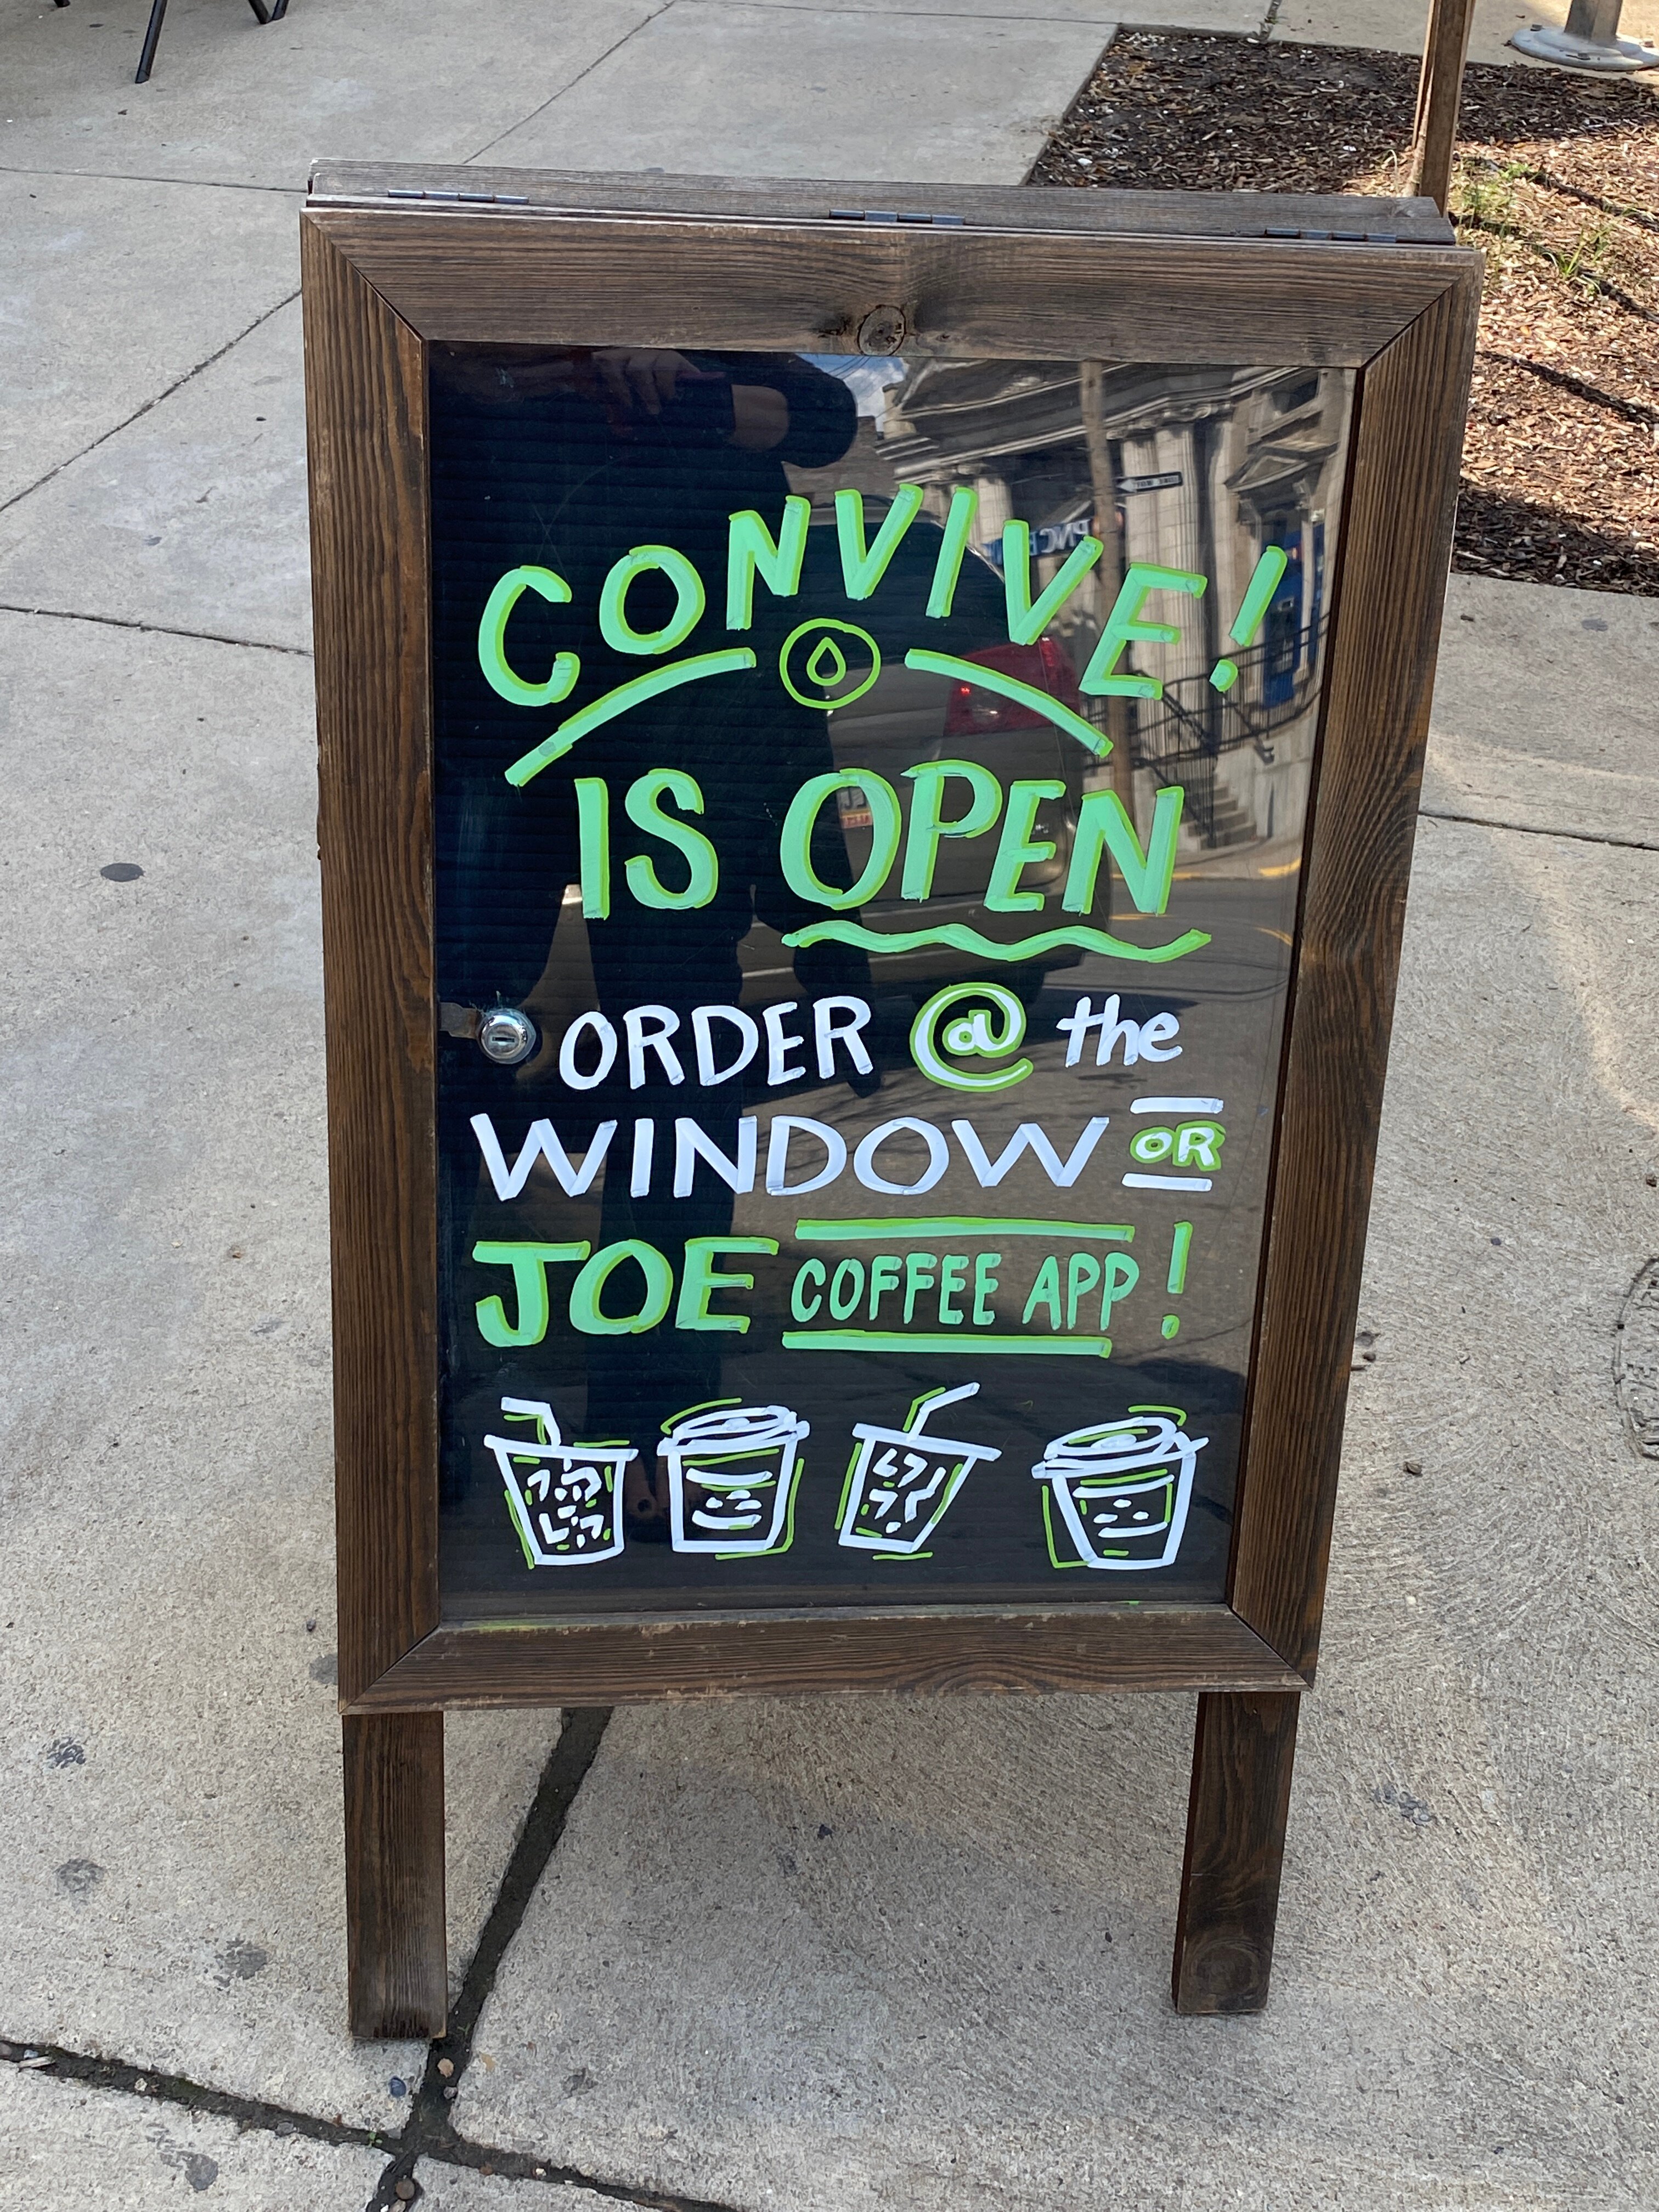 CONVIVE!
IS OPEN
ORDER @ the
WINDOW OR
JOE COFFEE APP!
PNC